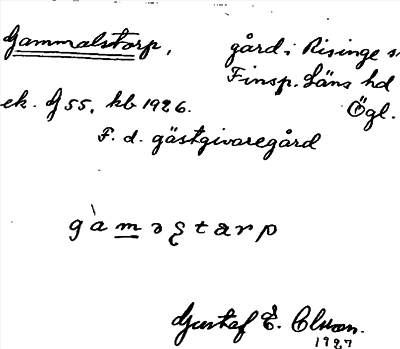 Gammalstorp, gård i Risinge s
Finsp. Läns hd
ek. G 55, kb 1926. Ögl.
F. d. gästgivaregård
gàmǝʂtàrp
Gustaf E. Olsson.
1927